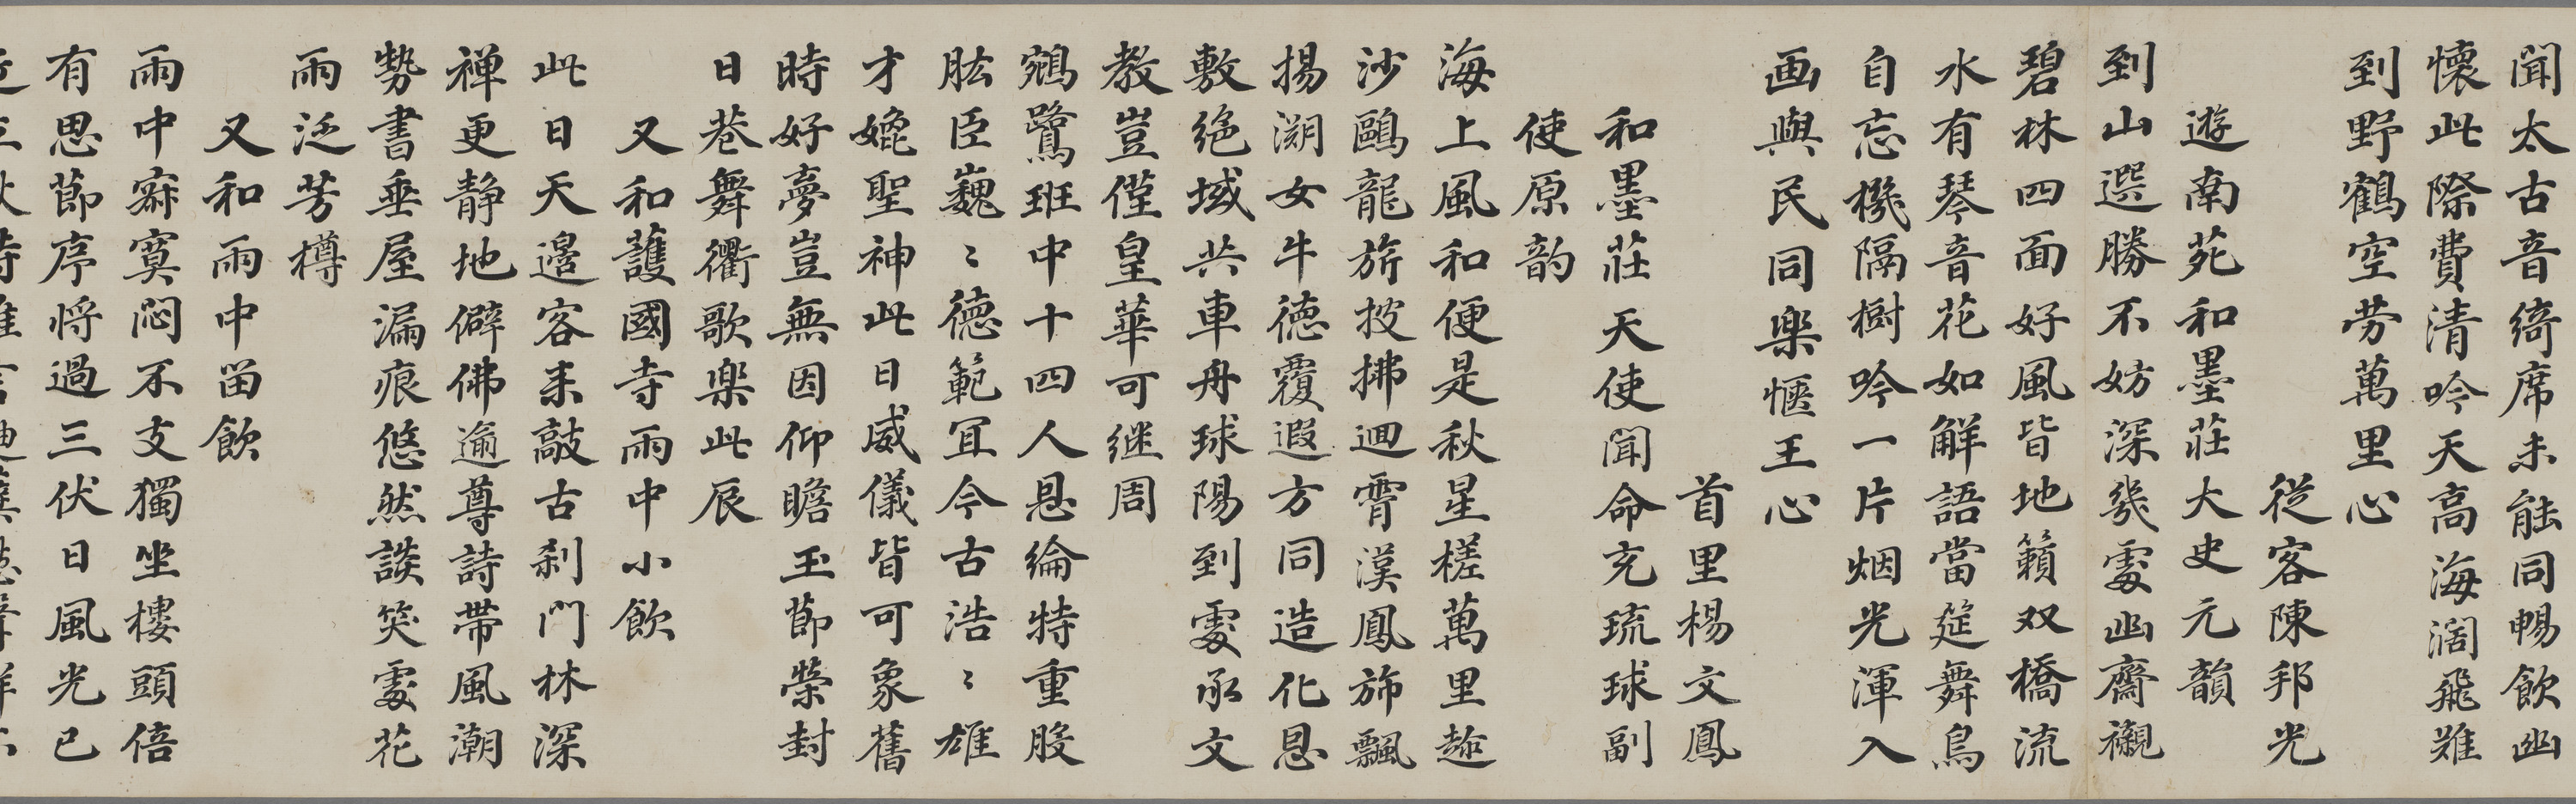 聞太古音綺席未能同暢飲幽
懷此際費清吟天高海濶飛難
到野鶴空劳萬里心
從客陳邦光
遊南苑和墨莊大史元韻
到山選勝不妨深幾處幽齋襯
碧林四面好風皆地籟双橋流
水有琴音花如解語當筵舞鳥
自忘機隔樹吟一片烟光渾入
画與民同楽愜王心
首里楊文鳳
和墨莊天使聞命充琉球副
使原韵
海上風和便是秋星槎萬里逰
沙鷗龍旂披拂迴霄漢鳳斾飄
揚溯女牛徳覆遐方同造化恩
敷絶域共車舟球陽到處承文
教豈僅皇華可继周
鵷鷺班中十四人恩綸特重股
肱臣巍〻德範冝今古浩〻雄
才媲聖神此日威儀皆可象舊
時好夢豈無因仰瞻玉節榮封
日巷舞衢歌楽此辰
又和護國寺雨中小飲
此日天邉客来敲古刹門林深
禅更静地僻佛逾尊詩帯風潮
勢書垂屋漏痕悠然談笑處花
雨泛芳樽
又和雨中留飲
雨中寂寞悶不支獨坐樓頭倍
有思節序将過三伏日風光已